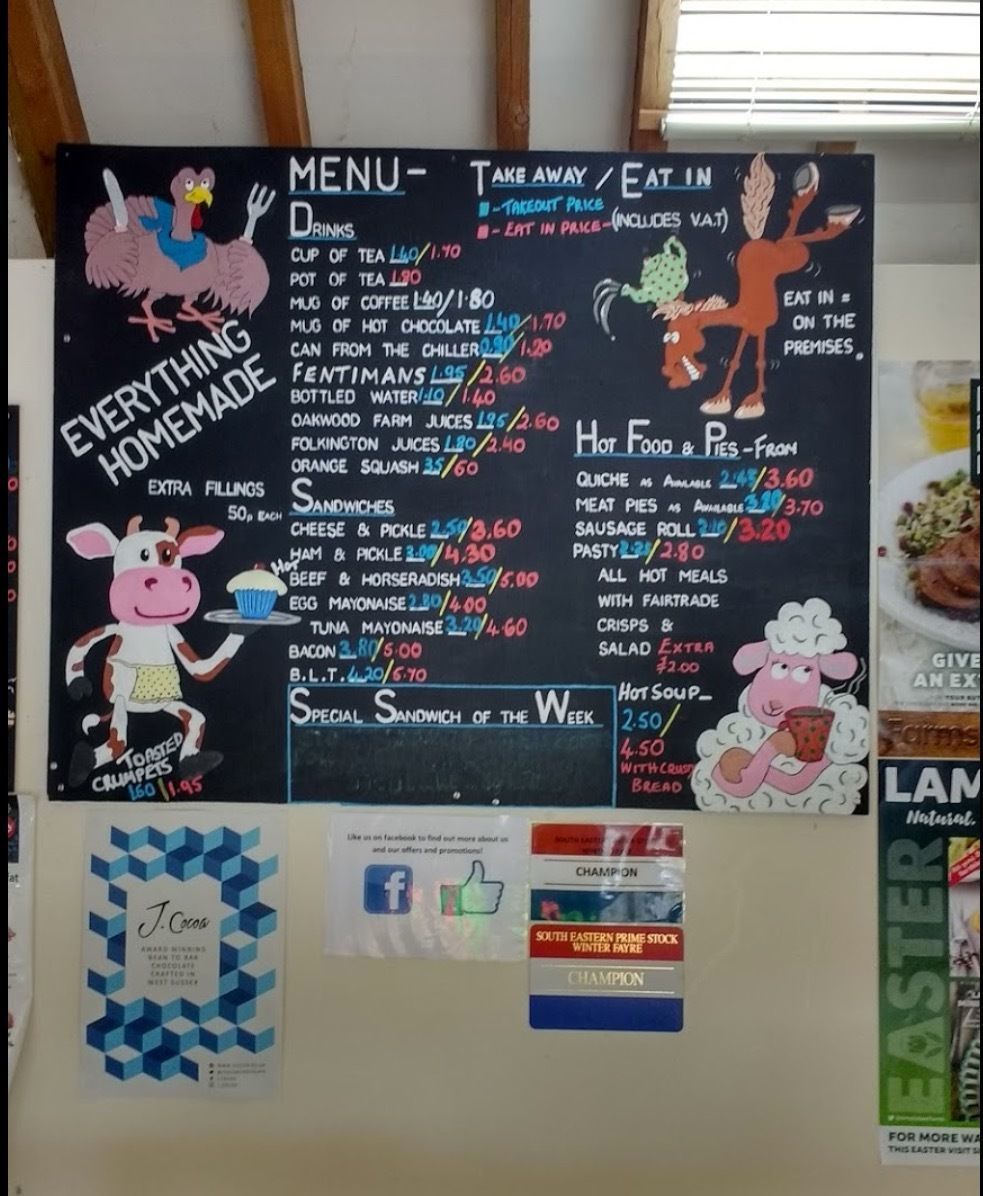 MENU-
TAKE AWAY / EAT IN
- TAKEOUT PRICE
- EAT IN PRICE - (INCLUDES V.A.T)
DRINKS
CUP OF TEA 1.40/1.70
POT OF TEA 1.80
MUG OF COFFEE 1.40/1.80
MUG OF HOT CHOCOLATE 1.40/1.70
CAN FROM THE CHILLER 0.90/1.20
FENTIMANS 1.95/2.60
BOTTLED WATER 1.10/1.40
OAKWOOD FARM JUICES 1.95/2.60
FOLKINGTON JUICES 1.80/2.40
ORANGE SQUASH 35/60
EAT IN =
ON THE
PREMISES.
EVERYTHING
HOMEMADE
EXTRA FILLINGS
50p EACH
SANDWICHES
CHEESE & PICKLE 2.50/3.60
HAM & PICKLE 3.00/4.30
Hot
BEEF & HORSERADISH 3.50/5.00
EGG MAYONAISE 2.80/4.00
TUNA MAYONAISE 3.20/4.60
BACON 3.80/5.00
B.L.T. 4.20/5.70
HOT FOOD & PIES - FROM
QUICHE AS AVAILABLE 2.45/3.60
MEAT PIES AS AVAILABLE /3.70
SAUSAGE ROLL /3.20
PASTY /2.80
ALL HOT MEALS
WITH FAIRTRADE
CRISPS &
SALAD EXTRA
£2.00
SPECIAL SANDWICH OF THE WEEK
HOT SOUP_
2.50/
4.50
WITH CRUSTY
BREAD
TOASTED
CRUMPETS
1.60/1.95
J. Cocoa
AWARD WINNING
BEAN TO BAR
CHOCOLATE
CRAFTED IN
WEST SUSSEX
Like us on facebook to find out more about us
and our offers and promotions!
f
CHAMPION
SOUTH EASTERN PRIME STOCK
WINTER FAYRE
CHAMPION
GIVE
AN EX
Farms
LAM
Natural.
EASTER
FOR MORE WA
THIS EASTER VISIT S